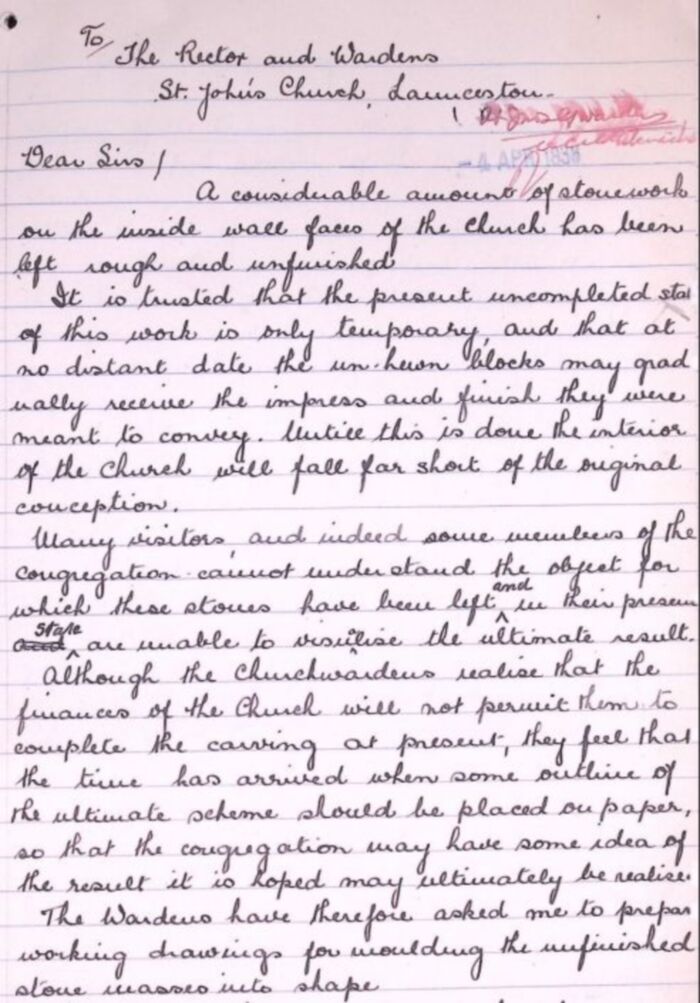 To
The Rector and Wardens
St. John's Church, Launceston.
- 4 APR 1938
Dear Sirs /
A considerable amount of stonework
on the inside wall faces of the Church has been
left rough and unfinished
It is trusted that the present uncompleted stat
of this work is only temporary, and that at
no distant date the un-hewn blocks may grad
ually receive the impress and finish they were
meant to convey. Untill this is done the interior
of the Church will fall far short of the original
conception.
Many visitors, and indeed some members of the
congregation cannot understand the object for
which these stones have been left and in their presen
state are unable to visulise the ultimate result.
Although the Churchwardens realise that the
finances of the Church will not permit them to
complete the carving at present, they feel that
the time has arrived when some outline of
the ultimate scheme should be placed on paper,
so that the congregation may have some idea of
the result it is hoped may ultimately be realise
The Wardens have therefore asked me to prepar
working drawings for moulding the unfinished
stone masses into shape